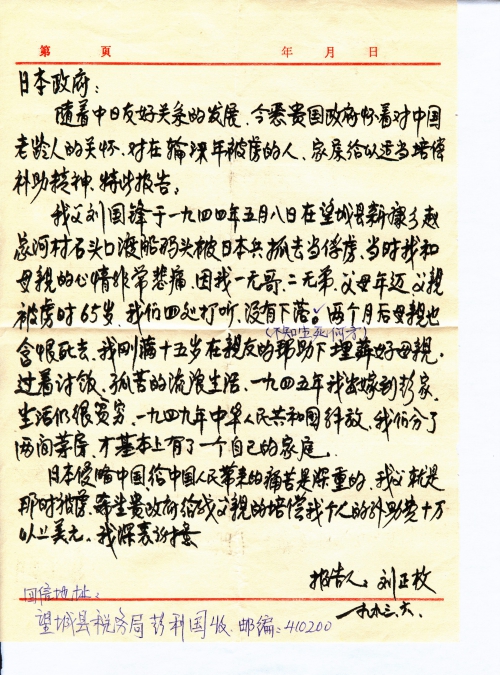 第 頁 年 月 日
日本政府：
随着中日友好关系的发展、今悉贵国政府怀着对中国
老龄人的关怀、对在输深年被虏的人、家属给以适当培偿
补助精神、特此报告：
我父刘国锋于一九四四年五月八日在望城县新康乡
河村石头口渡船码头被日本兵抓去当俘虏，当时我和
母亲的心情非常悲痛，因我一无哥、二无弟，父母年迈，父亲
被虏时65岁，我们四处打听，没有下落。两个月后母亲也
(不知生死何方)
含恨死去，我刚满十五岁在亲友的帮助下埋葬好母亲，
过着讨饭、孤苦的流浪生活，一九四五年我出嫁到彭家，
生活仍很贫穷，一九四九年中华人民共和国解放，我们分了
两间茅房，才基本上有了一个自己的家庭。
日本侵略中国给中国人民带来的痛苦是深重的，我父就是
那时被虏，希望贵政府给我父亲的培偿我个人的补助费十万
以上美元，我深表谢意
报告人：刘正枚
一九九三、六、
回信地址：
望城县税务局彭利国收、邮编：410200